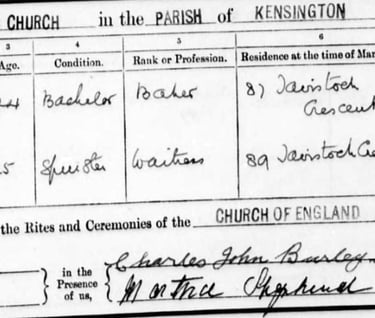 CHURCH in the PARISH of KENSINGTON
3 4 5 6
Age. Condition. Rank or Profession. Residence at the time of Mar
Bachelor Baker 87 Tavistock
Crescent
5 Spinster Waitress 89 Tavistock Cre
the Rites and Ceremonies of the CHURCH OF ENGLAND
in the Presence of us,
Charles John Burley
Shepherd